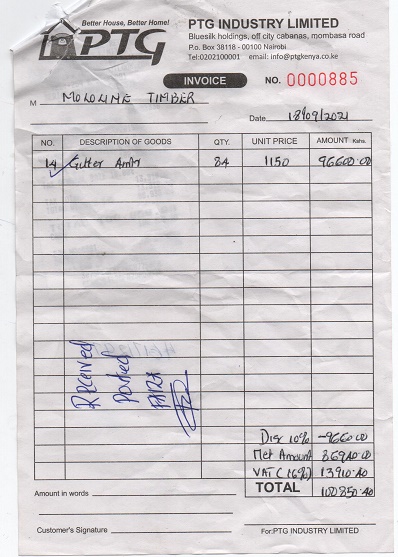 Better House, Better Home!
PTG
PTG INDUSTRY LIMITED
Bluesilk holdings, off city cabanas, mombasa road
P.o. Box 38118 - 00100 Nairobi
Tel:0202100001 email: info@ptgkenya.co.ke
INVOICE NO. 0000885
M MOLOLINE TIMBER
Date 18/09/2021
NO. DESCRIPTION OF GOODS QTY. UNIT PRICE AMOUNT Kshs.
14 Gutter 84 1150 96600.00
Received
Dis 10% -9660.00
Net Amount 86940.00
VAT (16%) 13910.40
TOTAL 100850.40
Amount in words
Customer's Signature
For:PTG INDUSTRY LIMITED